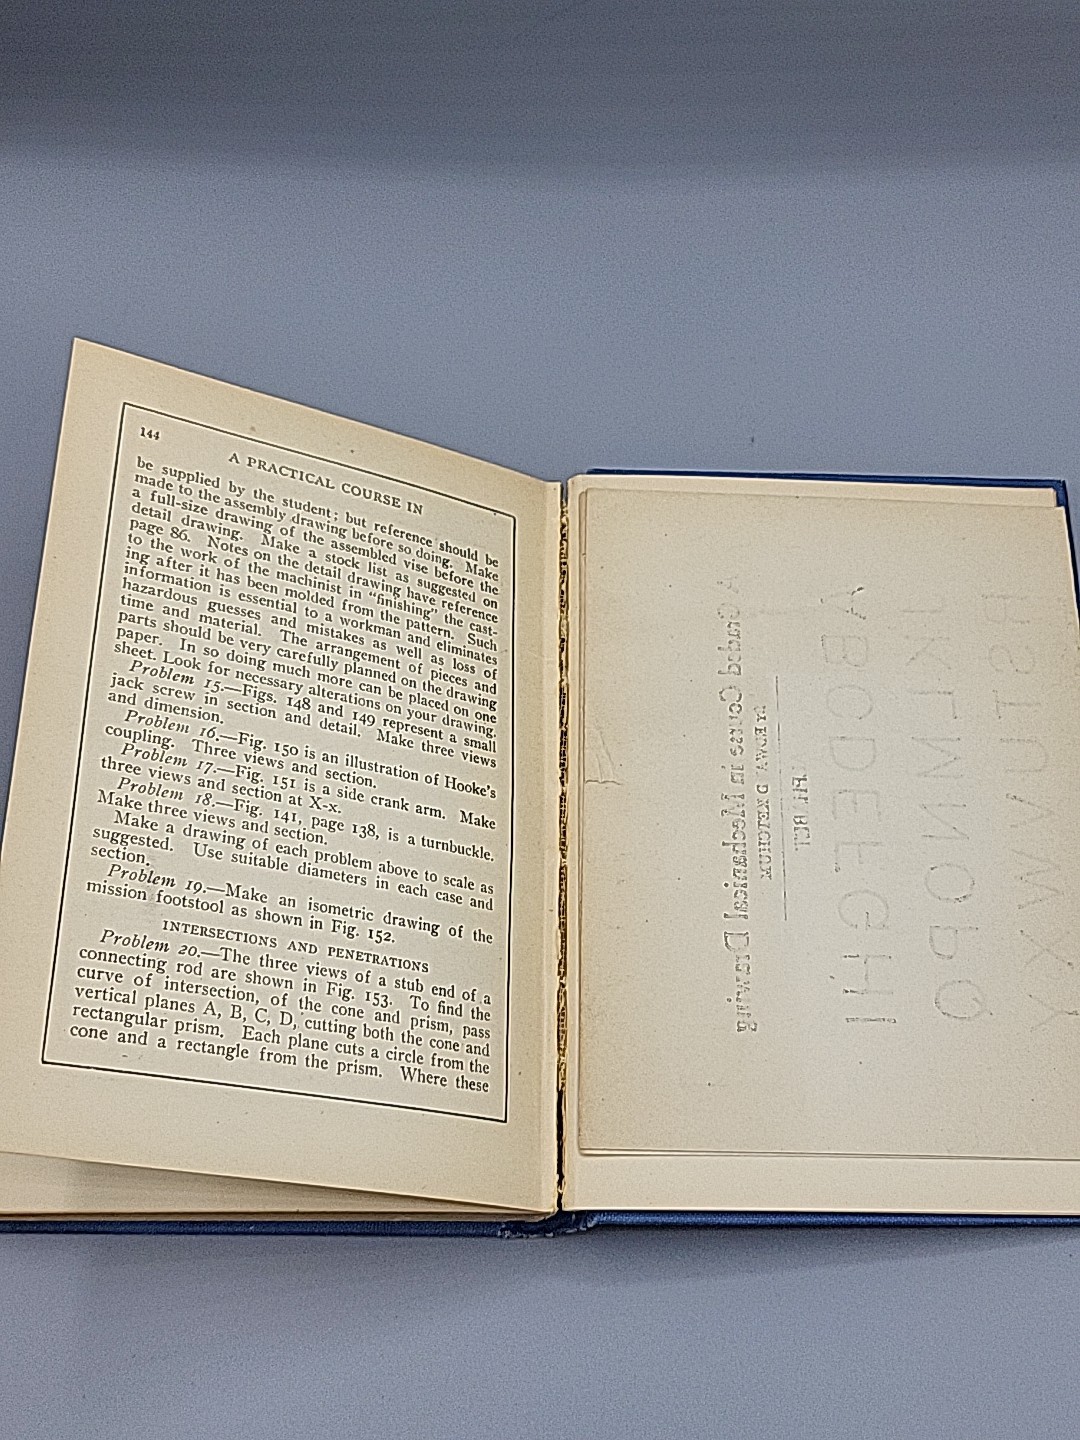 144
A PRACTICAL COURSE IN
be supplied by the student; but reference should be
made to the assembly drawing before so doing. Make
a full-size drawing of the assembled vise before the
detail drawing. Make a stock list as suggested on
page 86. Notes on the detail drawing have reference
to the work of the machinist in "finishing" the cast-
ing after it has been molded from the pattern. Such
information is essential to a workman and eliminates
hazardous guesses and mistakes as well as loss of
time and material. The arrangement of pieces and
parts should be very carefully planned on the drawing
paper. In so doing much more can be placed on one
sheet. Look for necessary alterations on your drawing.
Problem 15.—Figs. 148 and 149 represent a small
jack screw in section and detail. Make three views
and dimension.
Problem 16.—Fig. 150 is an illustration of Hooke's
coupling. Three views and section.
Problem 17.—Fig. 151 is a side crank arm. Make
three views and section at X-x.
Problem 18.—Fig. 141, page 138, is a turnbuckle.
Make three views and section.
Make a drawing of each problem above to scale as
suggested. Use suitable diameters in each case and
section.
Problem 19.—Make an isometric drawing of the
mission footstool as shown in Fig. 152.
INTERSECTIONS AND PENETRATIONS
Problem 20.—The three views of a stub end of a
connecting rod are shown in Fig. 153. To find the
curve of intersection, of the cone and prism, pass
vertical planes A, B, C, D, cutting both the cone and
rectangular prism. Each plane cuts a circle from the
cone and a rectangle from the prism. Where these
A Graded Course in Mechanical Drawing